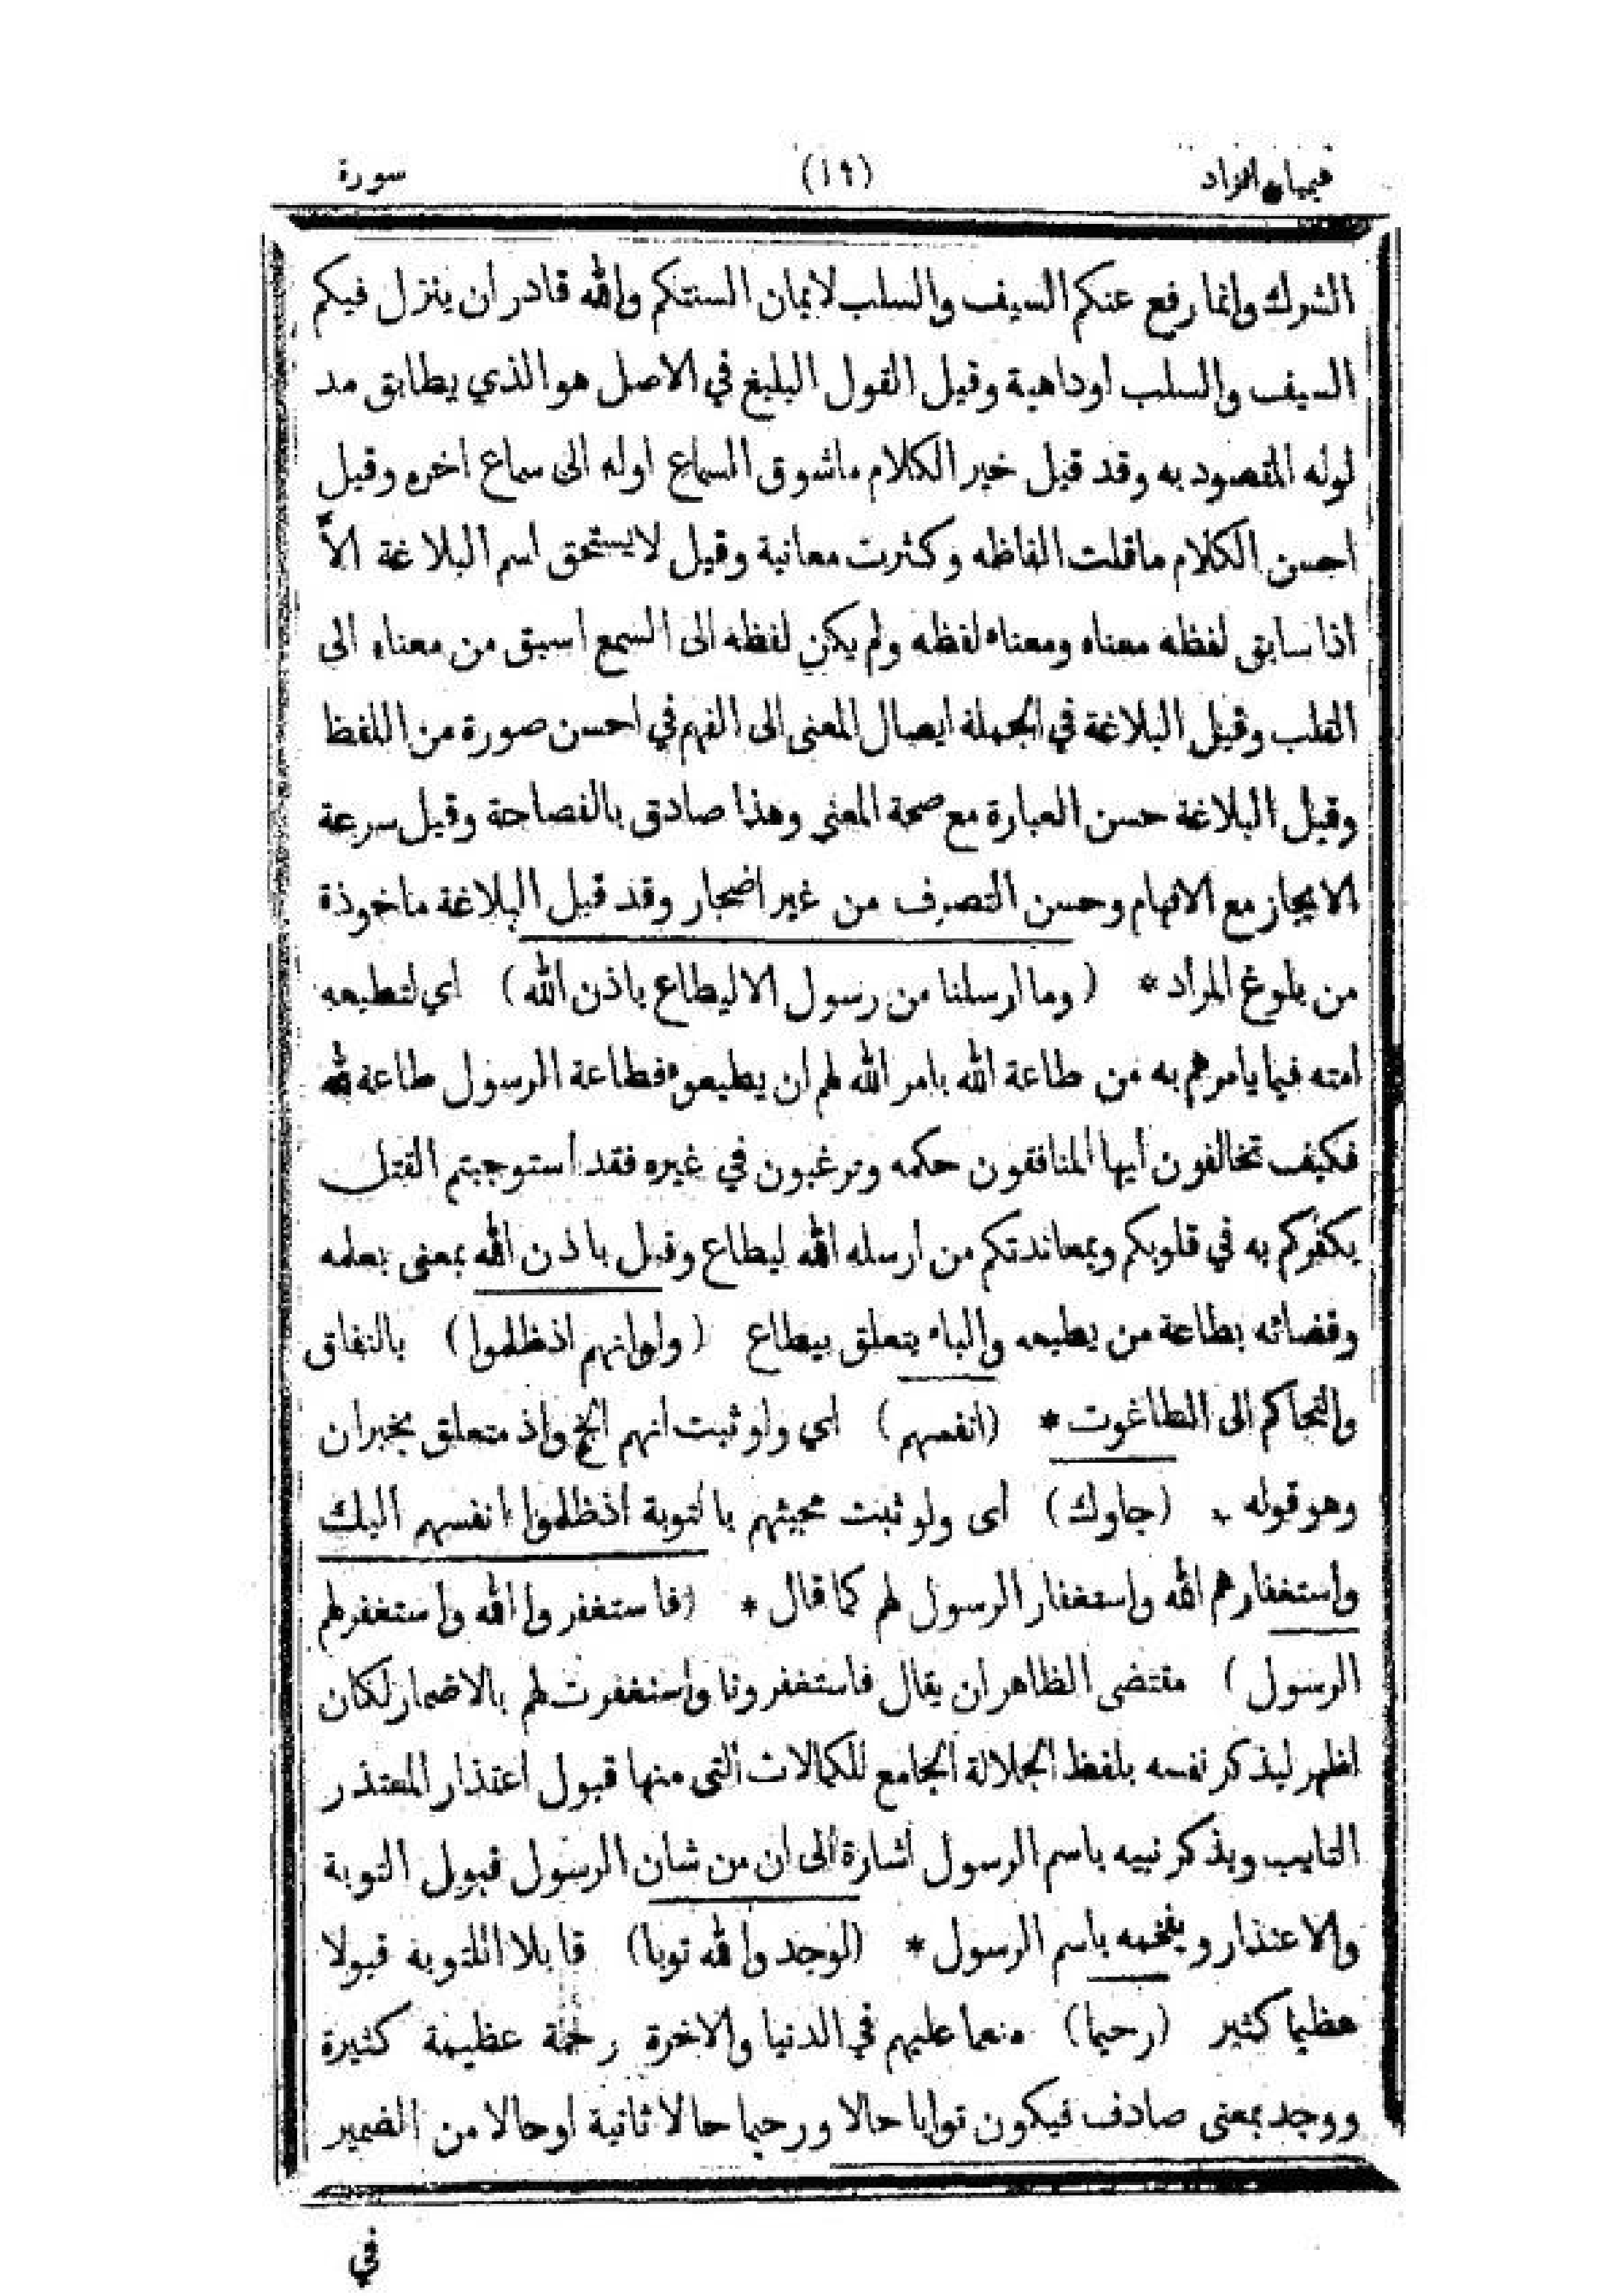 هيميان الزاد (١٩) سورة
الشرك وانما رفع عنكم السيف والسلب لايمان السنتكم والله قادر ان ينزل فيكم
السيف والسلب اوداهية وقيل القول البليغ في الاصل هو الذي يطابق مد
لوله المقصود به وقد قيل خير الكلام ماشوق السماع اوله الى سماع اخره وقيل
احسن الكلام ماقلت الفاظه وكثرت معانية وقيل لايستحق اسم البلاغة الاّ
اذا سابق لفظه معناه ومعناه لفظه ولم يكن لفظه الى السمع اسبق من معناه الى
القلب وقيل البلاغة في الجملة ايصال المعنى الى الفهم في احسن صورة من اللفظ
وقيل البلاغة حسن العبارة مع صحة المعنى وهذا صادق بالفصاحة وقيل سرعة
الايجاز مع الافهام وحسن التصرف من غير اضجار وقد قيل البلاغة ماخوذة
من بلوغ المراد * ( وما ارسلنا من رسول الاليطاع باذن الله ) اي لتطيعه
امته فيما يامرهم به من طاعة الله بامر الله لهم ان يطيعوه فطاعة الرسول طاعة لله
فكيف تخالفون ايها المنافقون حكمه وترغبون في غيره فقد استوجبتم القتل
بكفركم به في قلوبكم وبمعاندتكم من ارسله الله ليطاع وقيل باذن الله بمعنى بعلمه
وقضائه بطاعة من يطيعه والباء يتعلق بيطاع ( ولوانهم اذظلموا ) بالنفاق
والتحاكم الى الطاغوت * (انفسهم) اي ولو ثبت انهم الخ واذ متعلق بخبران
وهو قوله * (جاوك) اى ولو ثبت مجيئهم بالتوبة اذظلموا انفسهم اليك
واستغفارهم الله واستغفار الرسول لهم كما قال * (فاستغفروا الله واستغفرلهم
الرسول ) مقتضى الظاهر ان يقال فاستغفرونا واستغفرت لهم بالاضمار لكان
اظهر ليذكر نفسه بلفظ الجلالة الجامع للكمالات التى منها قبول اعتذار المعتذر
التايب ويذكر نبيه باسم الرسول اشارة الى ان من شان الرسول قبول التوبة
والاعتذار ويفخمه باسم الرسول * (لوجدوا الله توبا) قابلا للتوبة قبولا
عظيما كثير (رحيما) منعما عليهم في الدنيا والاخرة رحمة عظيمة كثيرة
ووجد بمعنى صادف فيكون توابا حالا ورحيما حالا ثانية اوحالا من الضمير
في